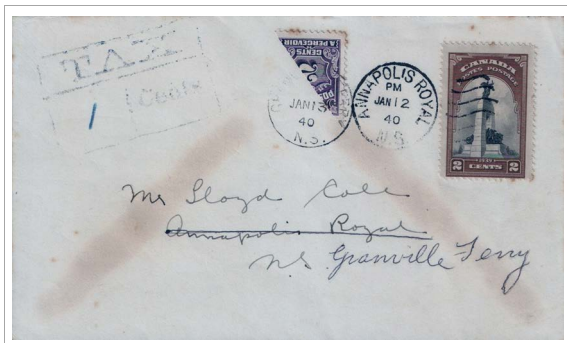 TAX
Cents
1
CENTS
A PERCEVOIR
2
JAN 13
40
N.S.
ANNAPOLIS ROYAL
PM
JAN 12
40
N.S.
CANADA
POSTES POSTAGE
2 CENTS 2
Mr Lloyd Cole
Annapolis Royal
N.S. Granville Ferry